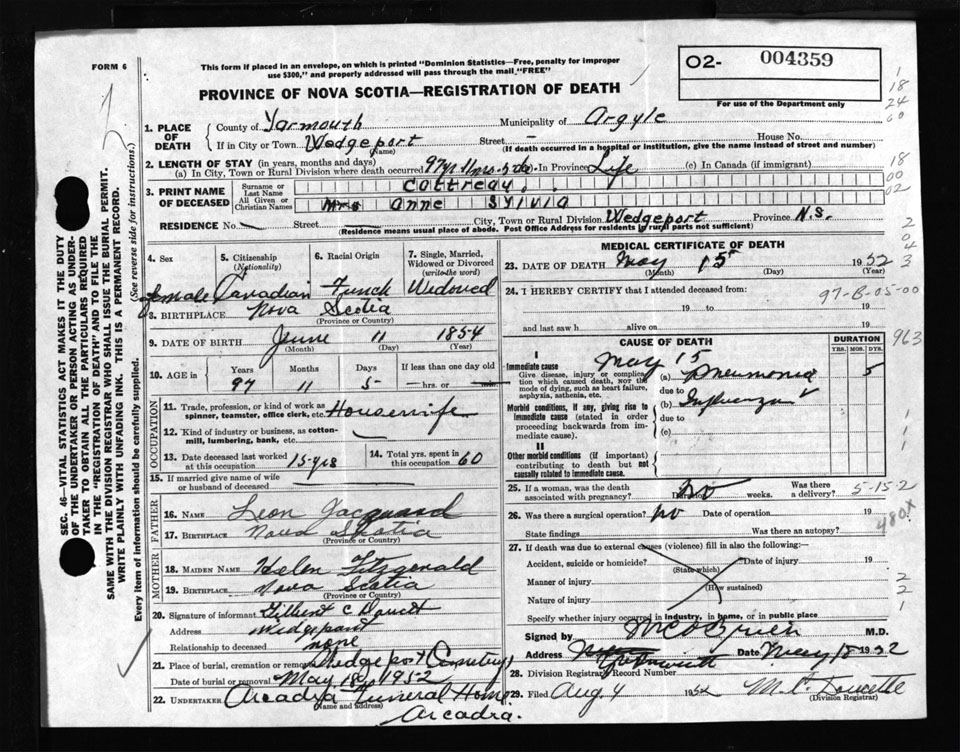 FORM 6
This form if placed in an envelope, on which is printed "Dominion Statistics—Free, penalty for improper
use $300," and properly addressed will pass through the mail "FREE"
O2- 004359
For use of the Department only
PROVINCE OF NOVA SCOTIA—REGISTRATION OF DEATH
1. PLACE OF DEATH
County of Yarmouth Municipality of Argyle
If in City or Town Wedgeport (Name) Street - House No.
(If death occurred in a hospital or institution, give the name instead of street and number)
2. LENGTH OF STAY (in years, months and days)
(a) In City, Town or Rural Division where death occurred 97yr 11mos 5ds In Province Life (c) In Canada (if immigrant)
3. PRINT NAME OF DECEASED
Surname or Last Name Cottreau
All Given or Christian Names Mrs Anne Sylvia
RESIDENCE No. Street City, Town or Rural Division Wedgeport Province N.S.
(Residence means usual place of abode. Post Office Address for residents in rural parts not sufficient)
4. Sex
5. Citizenship (Nationality)
6. Racial Origin
7. Single, Married, Widowed or Divorced (write the word)
female Canadian French Widowed
8. BIRTHPLACE Nova Scotia
(Province or Country)
9. DATE OF BIRTH June 11 1854
(Month) (Day) (Year)
10. AGE in Years Months Days If less than one day old
97 11 5 hrs. or
OCCUPATION
11. Trade, profession, or kind of work as spinner, teamster, office clerk, etc. Housewife
12. Kind of industry or business, as cotton-mill, lumbering, bank, etc.
13. Date deceased last worked at this occupation 15 yrs
14. Total yrs. spent in this occupation 60
15. If married give name of wife or husband of deceased
FATHER
16. NAME Leon Jacquard
17. BIRTHPLACE Nova Scotia
(Province or Country)
MOTHER
18. MAIDEN NAME Helen Fitzgerald
19. BIRTHPLACE Nova Scotia
(Province or Country)
20. Signature of informant Gilbert C Doucet
Address Wedgeport
Relationship to deceased none
21. Place of burial, cremation or removal Wedgeport Cemetery
Date of burial or removal May 18, 1952
22. UNDERTAKER Arcadia Funeral Home
(Name and address)
Arcadia.
MEDICAL CERTIFICATE OF DEATH
23. DATE OF DEATH May 15 1952
(Month) (Day) (Year)
24. I HEREBY CERTIFY that I attended deceased from:
97-B-05-00
19 to 19
and last saw h alive on 19
CAUSE OF DEATH
DURATION
YRS. MOS. DYS.
I
May 15
Immediate cause
Give disease, injury or complication which caused death, not the mode of dying, such as heart failure, asphyxia, asthenia, etc.
(a) Pneumonia 5
due to
Morbid conditions, if any, giving rise to immediate cause (stated in order proceeding backwards from immediate cause).
(b) Influenza
due to
(c)
II
Other morbid conditions (if important) contributing to death but not causally related to immediate cause.
25. If a woman, was the death associated with pregnancy? no Duration weeks. Was there a delivery?
5-15-2
26. Was there a surgical operation? no Date of operation 19
State findings Was there an autopsy?
27. If death was due to external causes (violence) fill in also the following:—
Accident, suicide or homicide? (State which) Date of injury 19
Manner of injury (How sustained)
Nature of injury
Specify whether injury occurred in industry, in home, or in public place
Signed by M.D.
Address Yarmouth Date May 18 1952
28. Division Registrar's Record Number
29. Filed Aug 4 1952 M. C. Doucette
(Division Registrar)
SEC. 46—VITAL STATISTICS ACT MAKES IT THE DUTY
OF THE UNDERTAKER OR PERSON ACTING AS UNDER-
TAKER TO OBTAIN ALL THE PARTICULARS REQUIRED
IN THE "REGISTRATION OF DEATH" AND TO FILE THE
SAME WITH THE DIVISION REGISTRAR WHO SHALL ISSUE THE BURIAL PERMIT.
WRITE PLAINLY WITH UNFADING INK. THIS IS A PERMANENT RECORD.
Every item of information should be carefully supplied. (See reverse side for instructions.)
1
18
24
60
18
00
02
2
0
4
3
963
480x
2
2
1